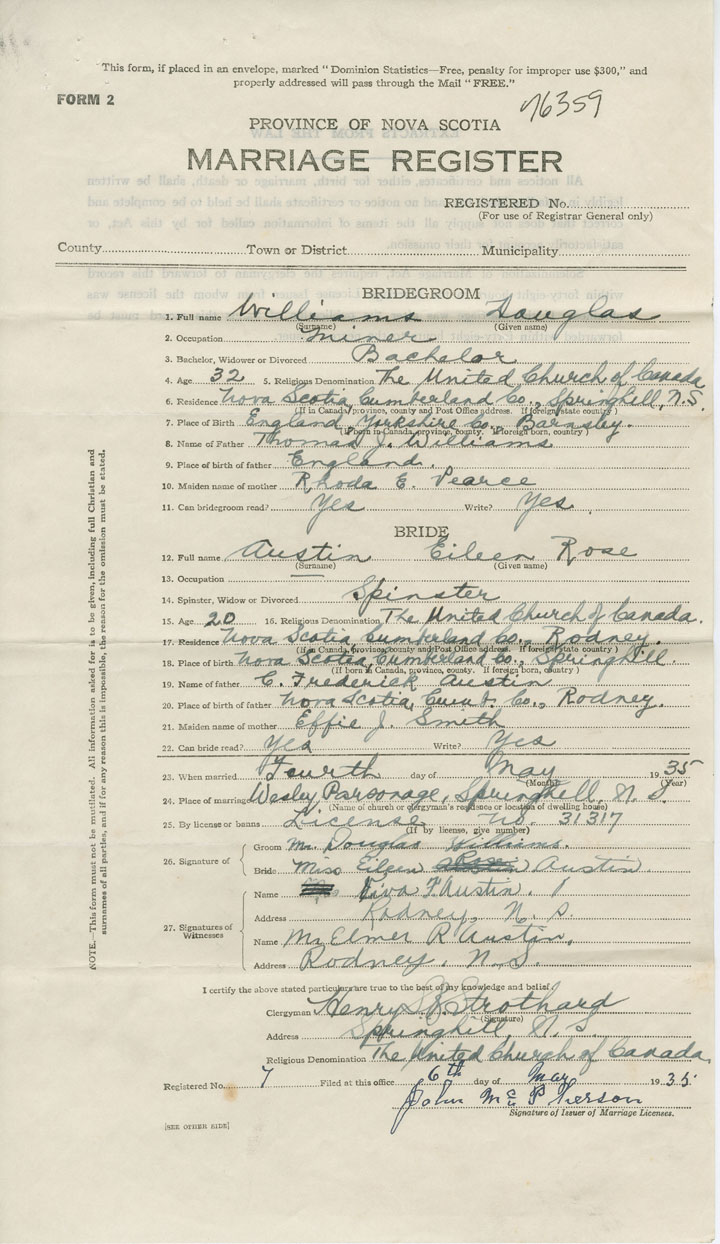 This form, if placed in an envelope, marked " Dominion Statistics—Free, penalty for improper use $300," and
properly addressed will pass through the Mail " FREE."
FORM 2
76359
PROVINCE OF NOVA SCOTIA
MARRIAGE REGISTER
REGISTERED No.
(For use of Registrar General only)
County Town or District Municipality
BRIDEGROOM
1. Full name Williams Douglas
(Surname) (Given name)
2. Occupation Miner
3. Bachelor, Widower or Divorced Bachelor
4. Age 32 5. Religious Denomination The United Church of Canada
6. Residence Nova Scotia Cumberland Co., Springhill, N.S.
(If in Canada, province, county and Post Office address. If foreign state country)
7. Place of Birth England Yorkshire Co., Barnsley.
(If born in Canada, province, county. If foreign born, country)
8. Name of Father Thomas J. Williams
9. Place of birth of father England.
10. Maiden name of mother Rhoda E. Pearce
11. Can bridegroom read? Yes Write? Yes
BRIDE
12. Full name Austin Eileen Rose
(Surname) (Given name)
13. Occupation —
14. Spinster, Widow or Divorced Spinster
15. Age 20 16. Religious Denomination The United Church of Canada.
17. Residence Nova Scotia, Cumberland Co., Rodney.
(If in Canada, province, county and Post Office address. If foreign state country)
18. Place of birth Nova Scotia, Cumberland Co., Springhill.
(If born in Canada, province, county. If foreign born, country)
19. Name of father C. Frederick Austin
20. Place of birth of father Nova Scotia, Cumb. Co., Rodney.
21. Maiden name of mother Effie J. Smith
22. Can bride read? Yes Write? Yes
23. When married Fourth day of May 1935
(Month) (Year)
24. Place of marriage Wesley Parsonage, Springhill, N.S.
(Name of church or clergyman's residence or location of dwelling house)
25. By license or banns License No. 31317
(If by license, give number)
26. Signature of
Groom Mr. Douglas Williams.
Bride Miss Eileen Rose Austin
27. Signatures of Witnesses
Name F. Austin.
Address Rodney, N.S.
Name Mr Elmer R Austin,
Address Rodney, N.S.
I certify the above stated particulars are true to the best of my knowledge and belief.
Clergyman Henry Strothard
(Signature)
Address Springhill, N.S.
Religious Denomination The United Church of Canada
Registered No. 7 Filed at this office 6th day of May 1935
John McPherson
Signature of Issuer of Marriage Licenses.
[SEE OTHER SIDE]
NOTE.—This form must not be mutilated. All information asked for is to be given, including full Christian and
surnames of all parties, and if for any reason this is impossible, the reason for the omission must be stated.